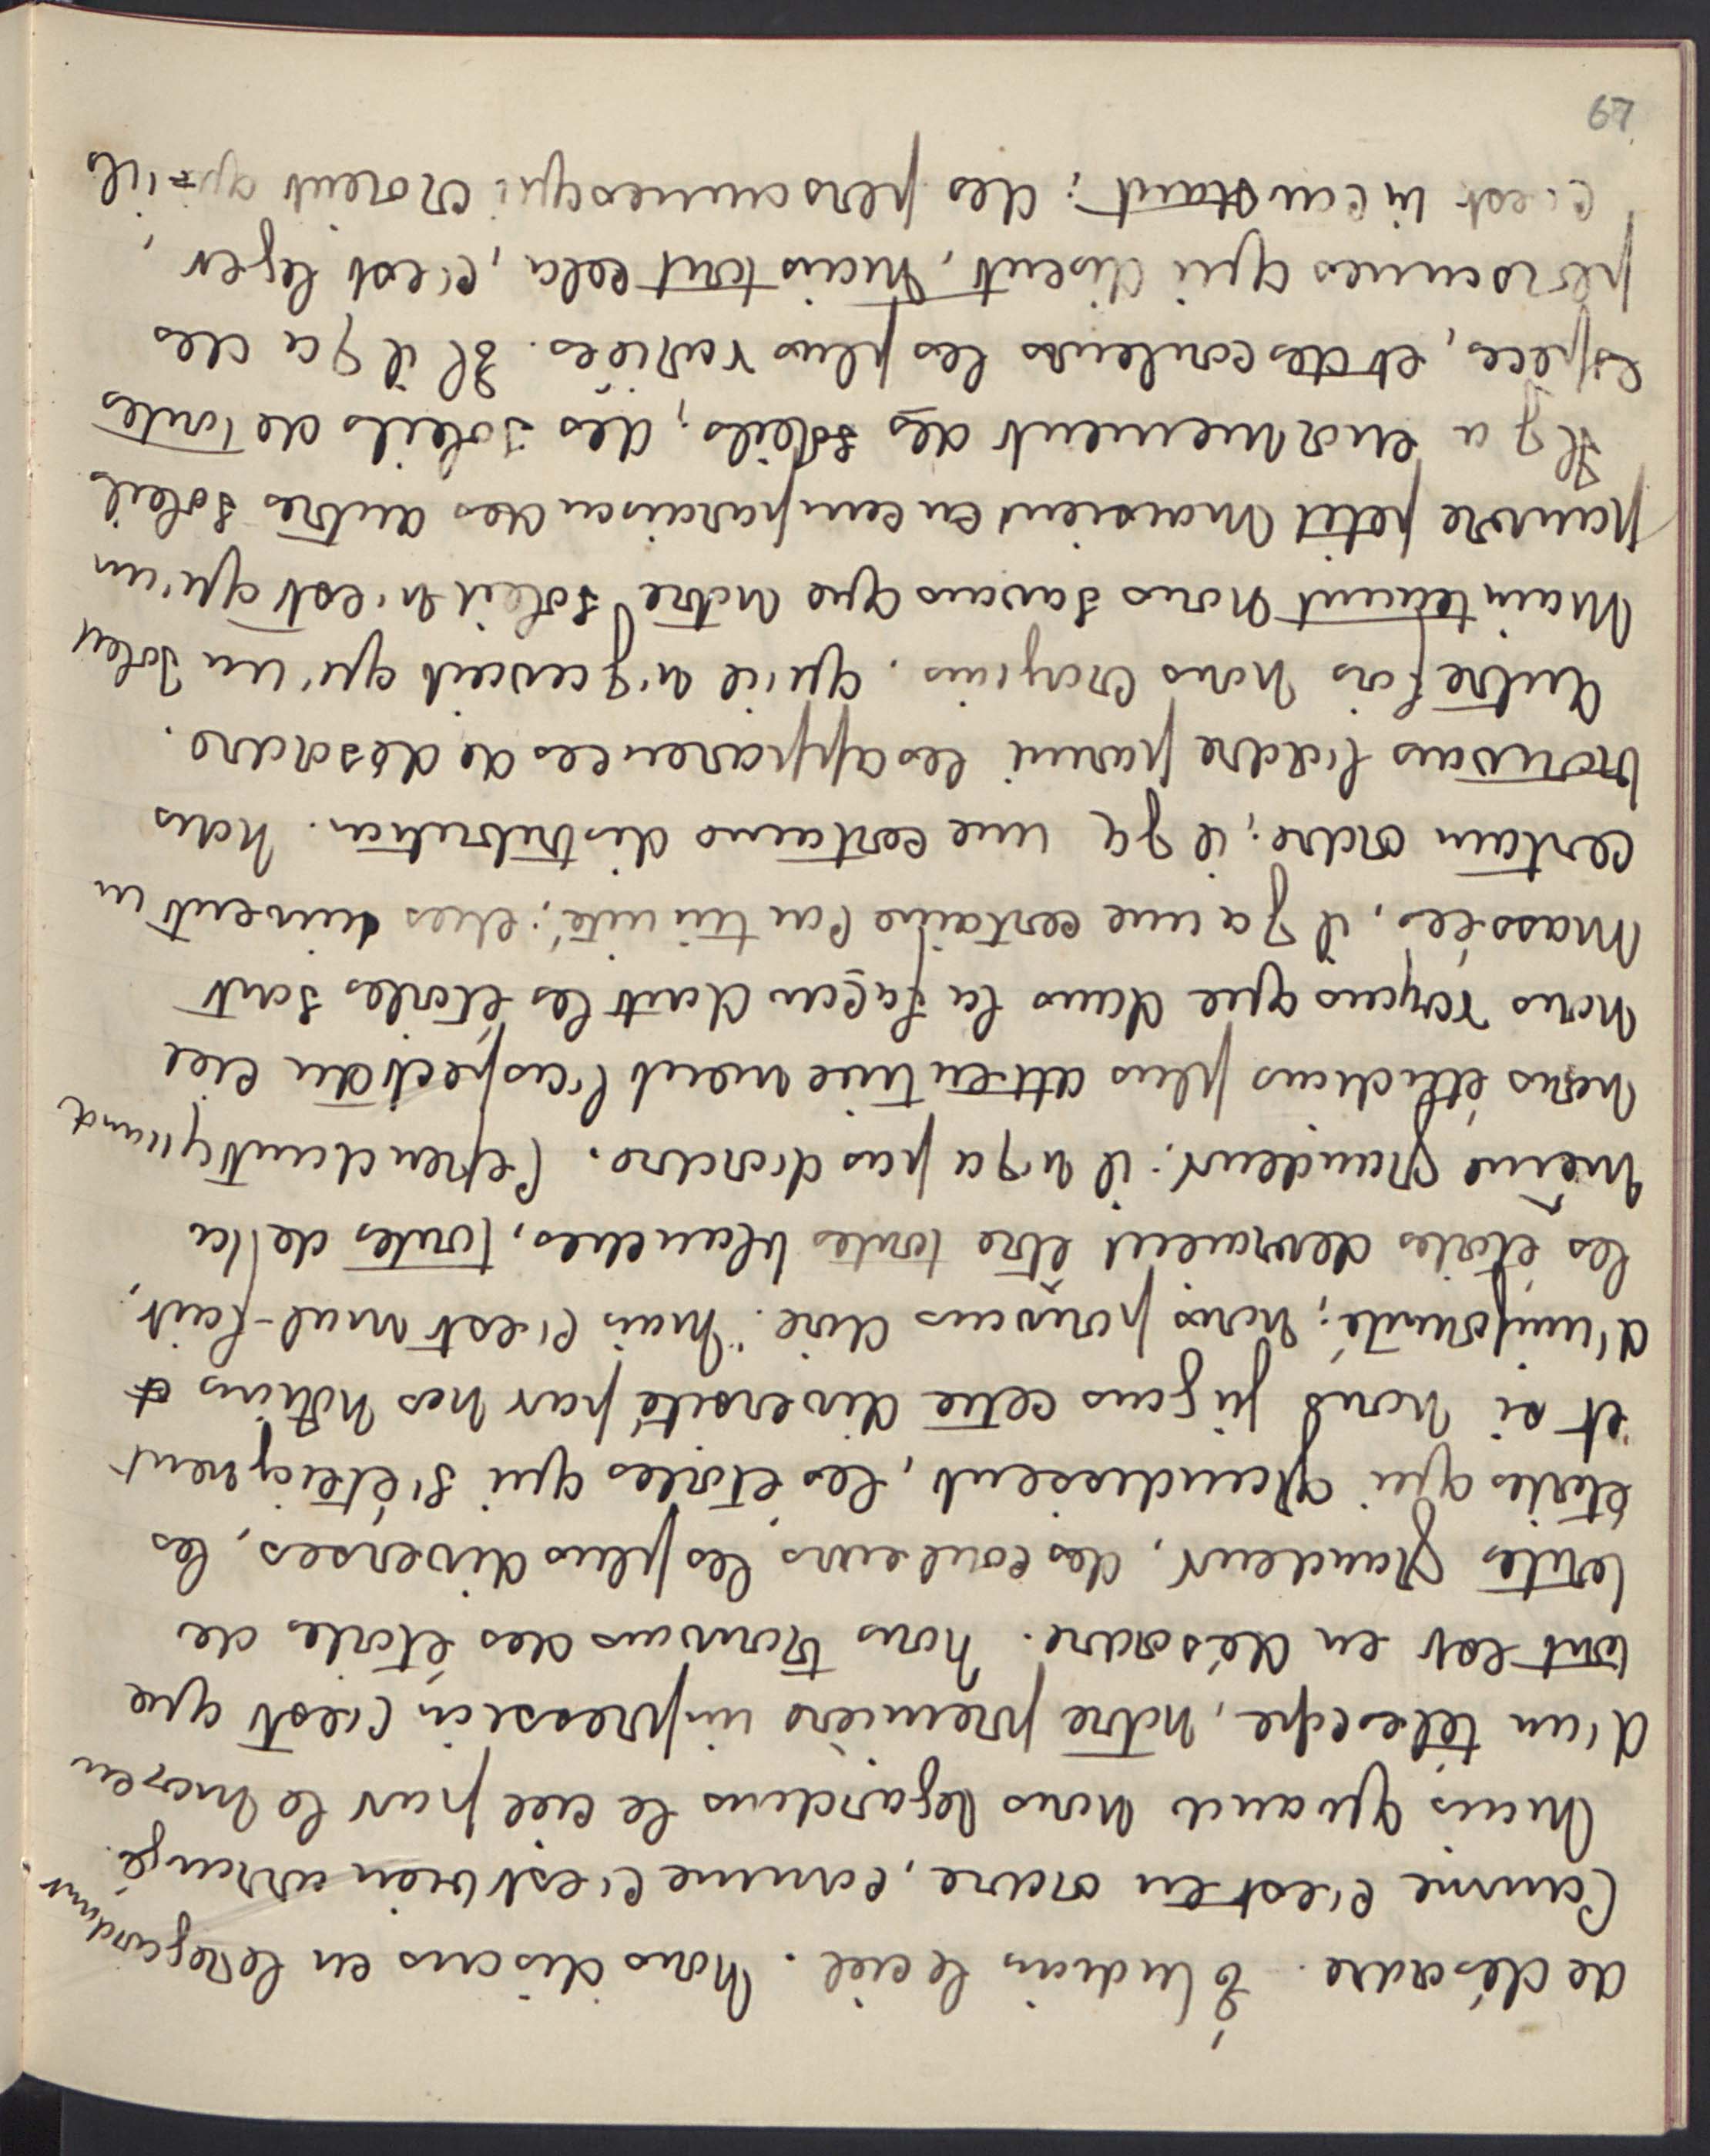 67
de désordre. Étudions le ciel. Nous disons en le regardant
Comme c'est en ordre, comme c'est bien arrangé.
Mais quand nous regardons le ciel par le moyen
d'un télescope, notre première impression c'est que
tout est en désordre. Nous trouvons des étoiles de
toutes grandeur, des couleurs les plus diverses, les
étoiles qui grandissent, les étoiles qui s'éteignent
et si nous jugeons cette diversité par nos notions
d'uniformité; nous pouvons dire: "Mais c'est mal-fait;
les étoiles devraient être toutes blanches, toutes de la
même grandeur: il n'y a pas d'ordre. Cependant quand
nous étudions plus attentivement l'aspect du ciel
nous voyons que dans la façon dont les étoiles sont
massées, il y a une certaine continuité; elles suivent un
certain ordre; il y a une certaine distribution. Nous
trouvons l'ordre parmi les apparences de désordre.
Autrefois nous croyions, qu'il n'y avait qu'un soleil
Maintenant nous savons que notre soleil n'est qu'un
pauvre petit morceau en comparaison des autres soleil
Il y a énormément des soleils; des soleils de toutes
espèce, et des couleurs les plus variées. Il il y a des
personnes qui disent, Mais tout cela, c'est léger,
c'est inconstant; des personnes qui croient qu'il